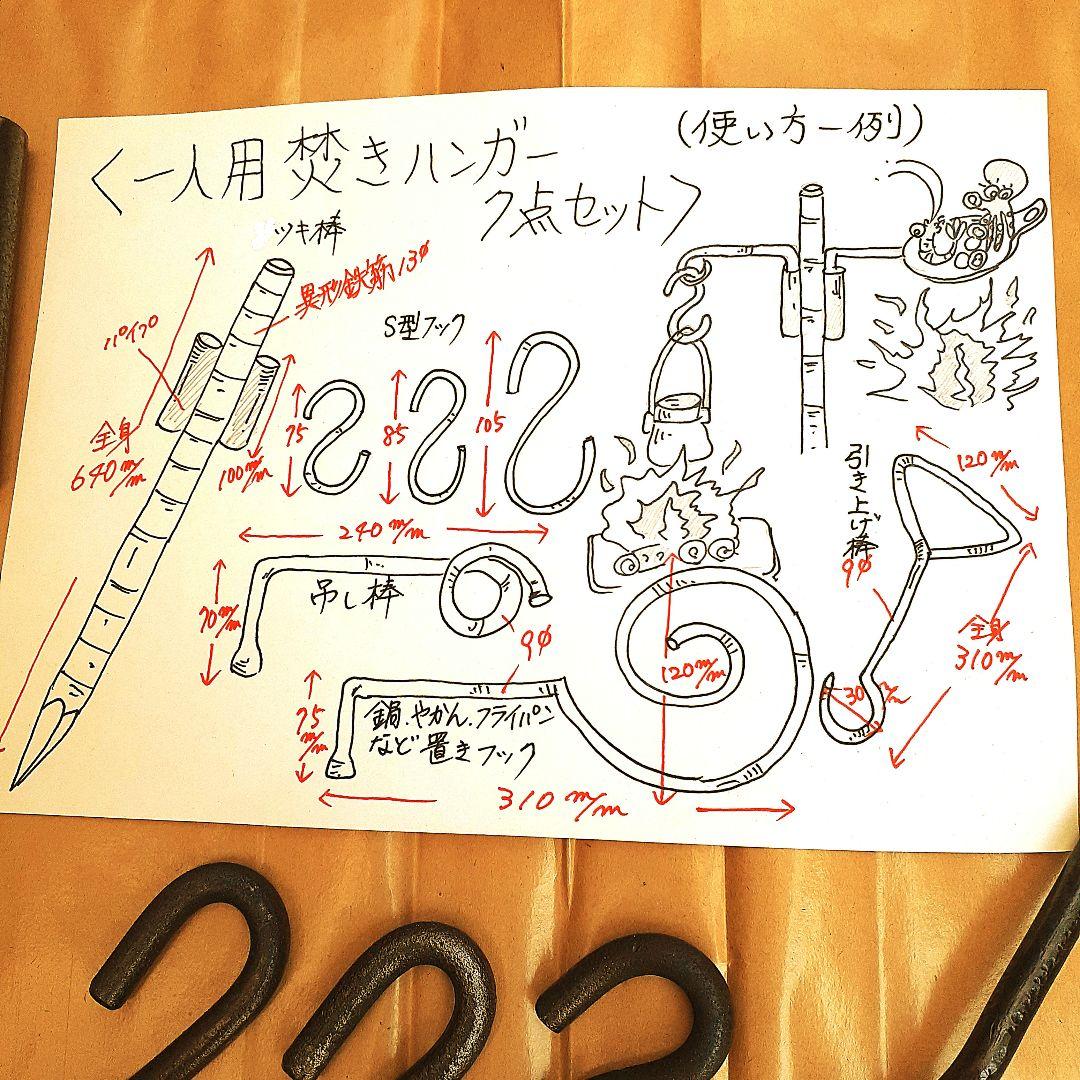 <一人用 焚きハンガー
7点セット>
(使い方一例)
ツキ棒
異形鉄筋13φ
パイプ
全身
640m/m
100m/m
S型フック
75
85
105
240m/m
70m/m
吊し棒
9φ
75m/m
鍋.やかん.フライパン
など置きフック
310m/m
120m/m
引き上げ棒
9φ
120m/m
全身
310m/m
30m/m